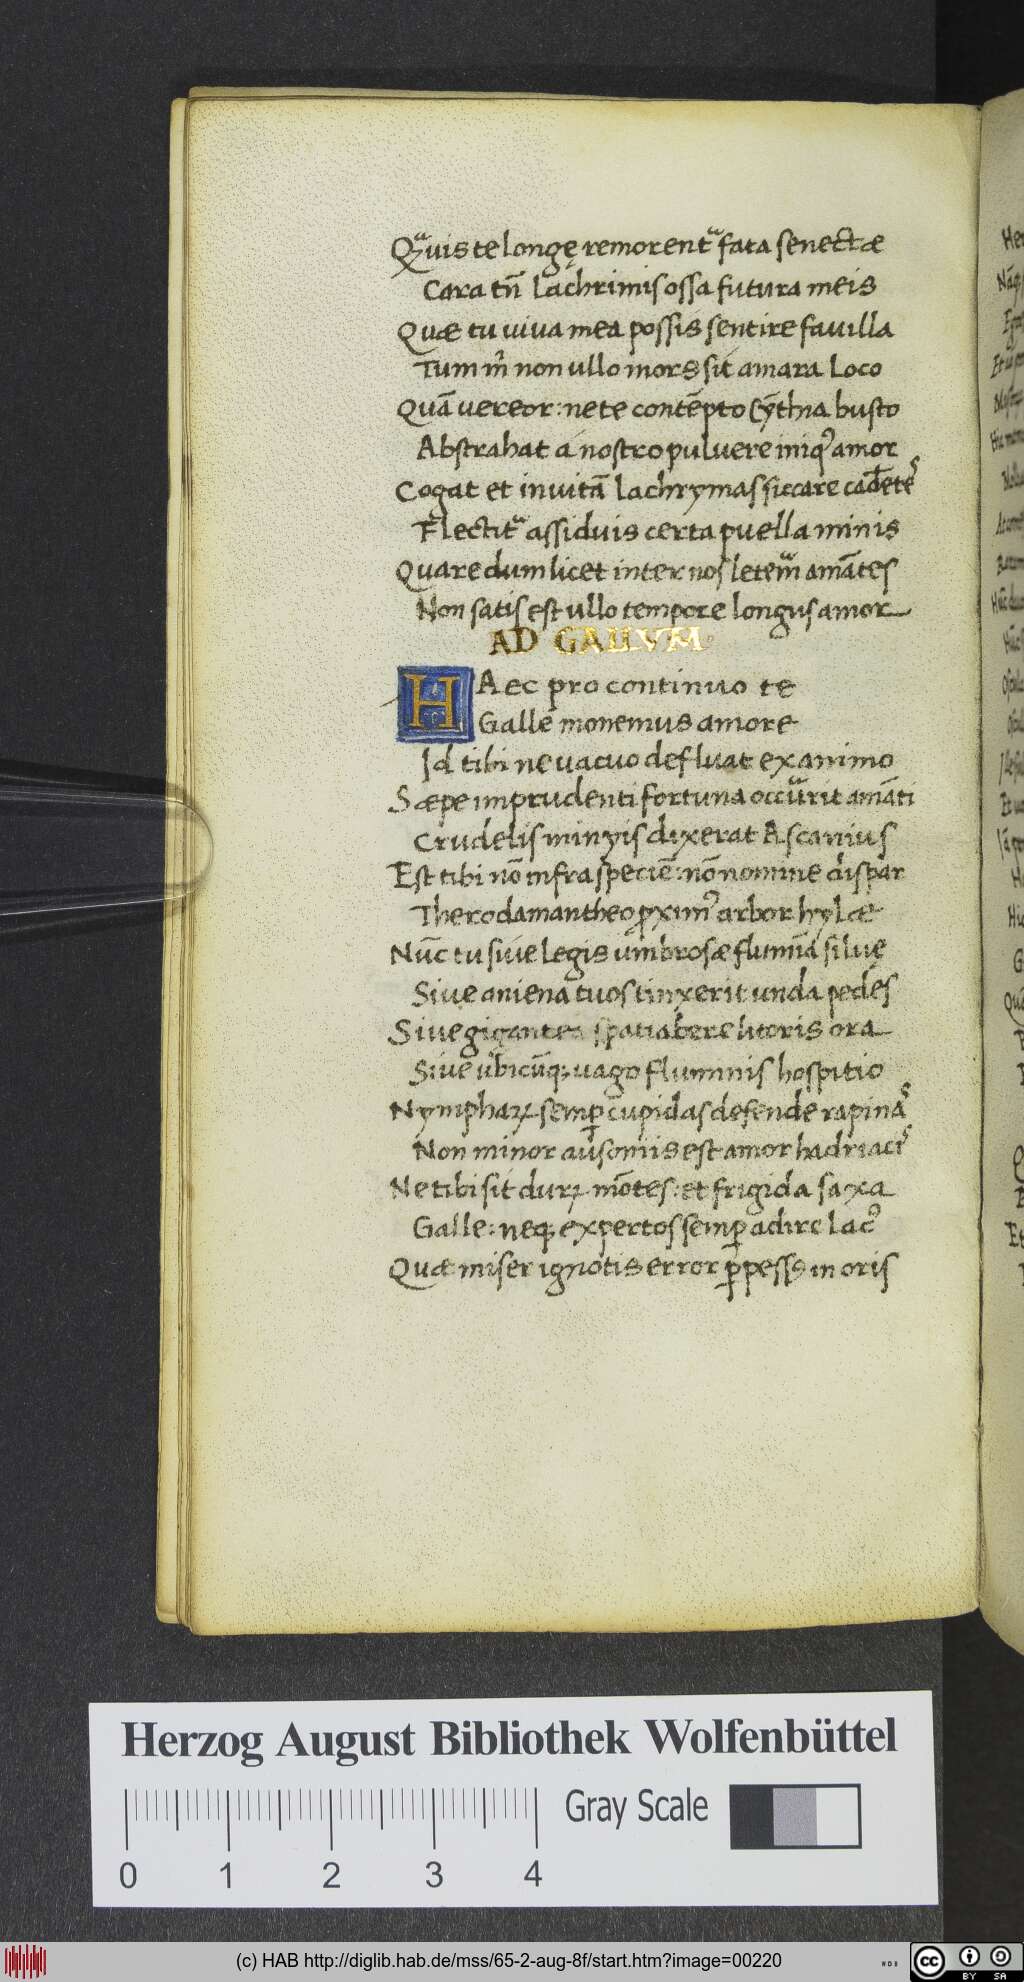 Qᵃuis te longę remorentᵃ fata senectæ
Cara tn̄ lachrimis ossa futura meis
Quæ tu uiua mea possis sentire fauilla
Tum m̊ non ullo mors sit amara loco
Quā uereor: ne te contēpto Cȳthia busto
Abstrahat á nostro puluere iniqꝰ amor
Cogat et inuitā lachrymas siccare cadētes
Flectitᵃ assiduis certa puella minis
Quare dum licet inter nos letemᵃ amātes
Non satis est ullo tempore longus amor
AD GALLVM
HAec pro continuo te
Galle monemus amore
Id tibi ne uacuo defluat ex animo
Sæpe imprudenti fortuna occurrit amāti
Crudelis minyis dixerat Ascanius
Est tibi nō infra speciē: nō nomine dispar
Therodamantheo ꝓximꝰ arbor hylæ
Nūc tu siue legis umbrosæ flumīa siluę
Siue aniena tuos tinxerit unda pedes
Siue gigantea spatiabere litoris ora
Siue ubicūqꝫ uago fluminis hospitio
Nympharꝝ semꝑ cupidas defende rapinas
Non minor ausoniis est amor hadriacis
Ne tibi sit durꝝ mōtes: et frigida saxa
Galle: neqꝫ expertos semꝑ adire lacꝰ
Quæ miser ignotis error ꝑpessꝰ in oris
Herzog August Bibliothek Wolfenbüttel
0 1 2 3 4
Gray Scale
(c) HAB http://diglib.hab.de/mss/65-2-aug-8f/start.htm?image=00220
cc BY SA